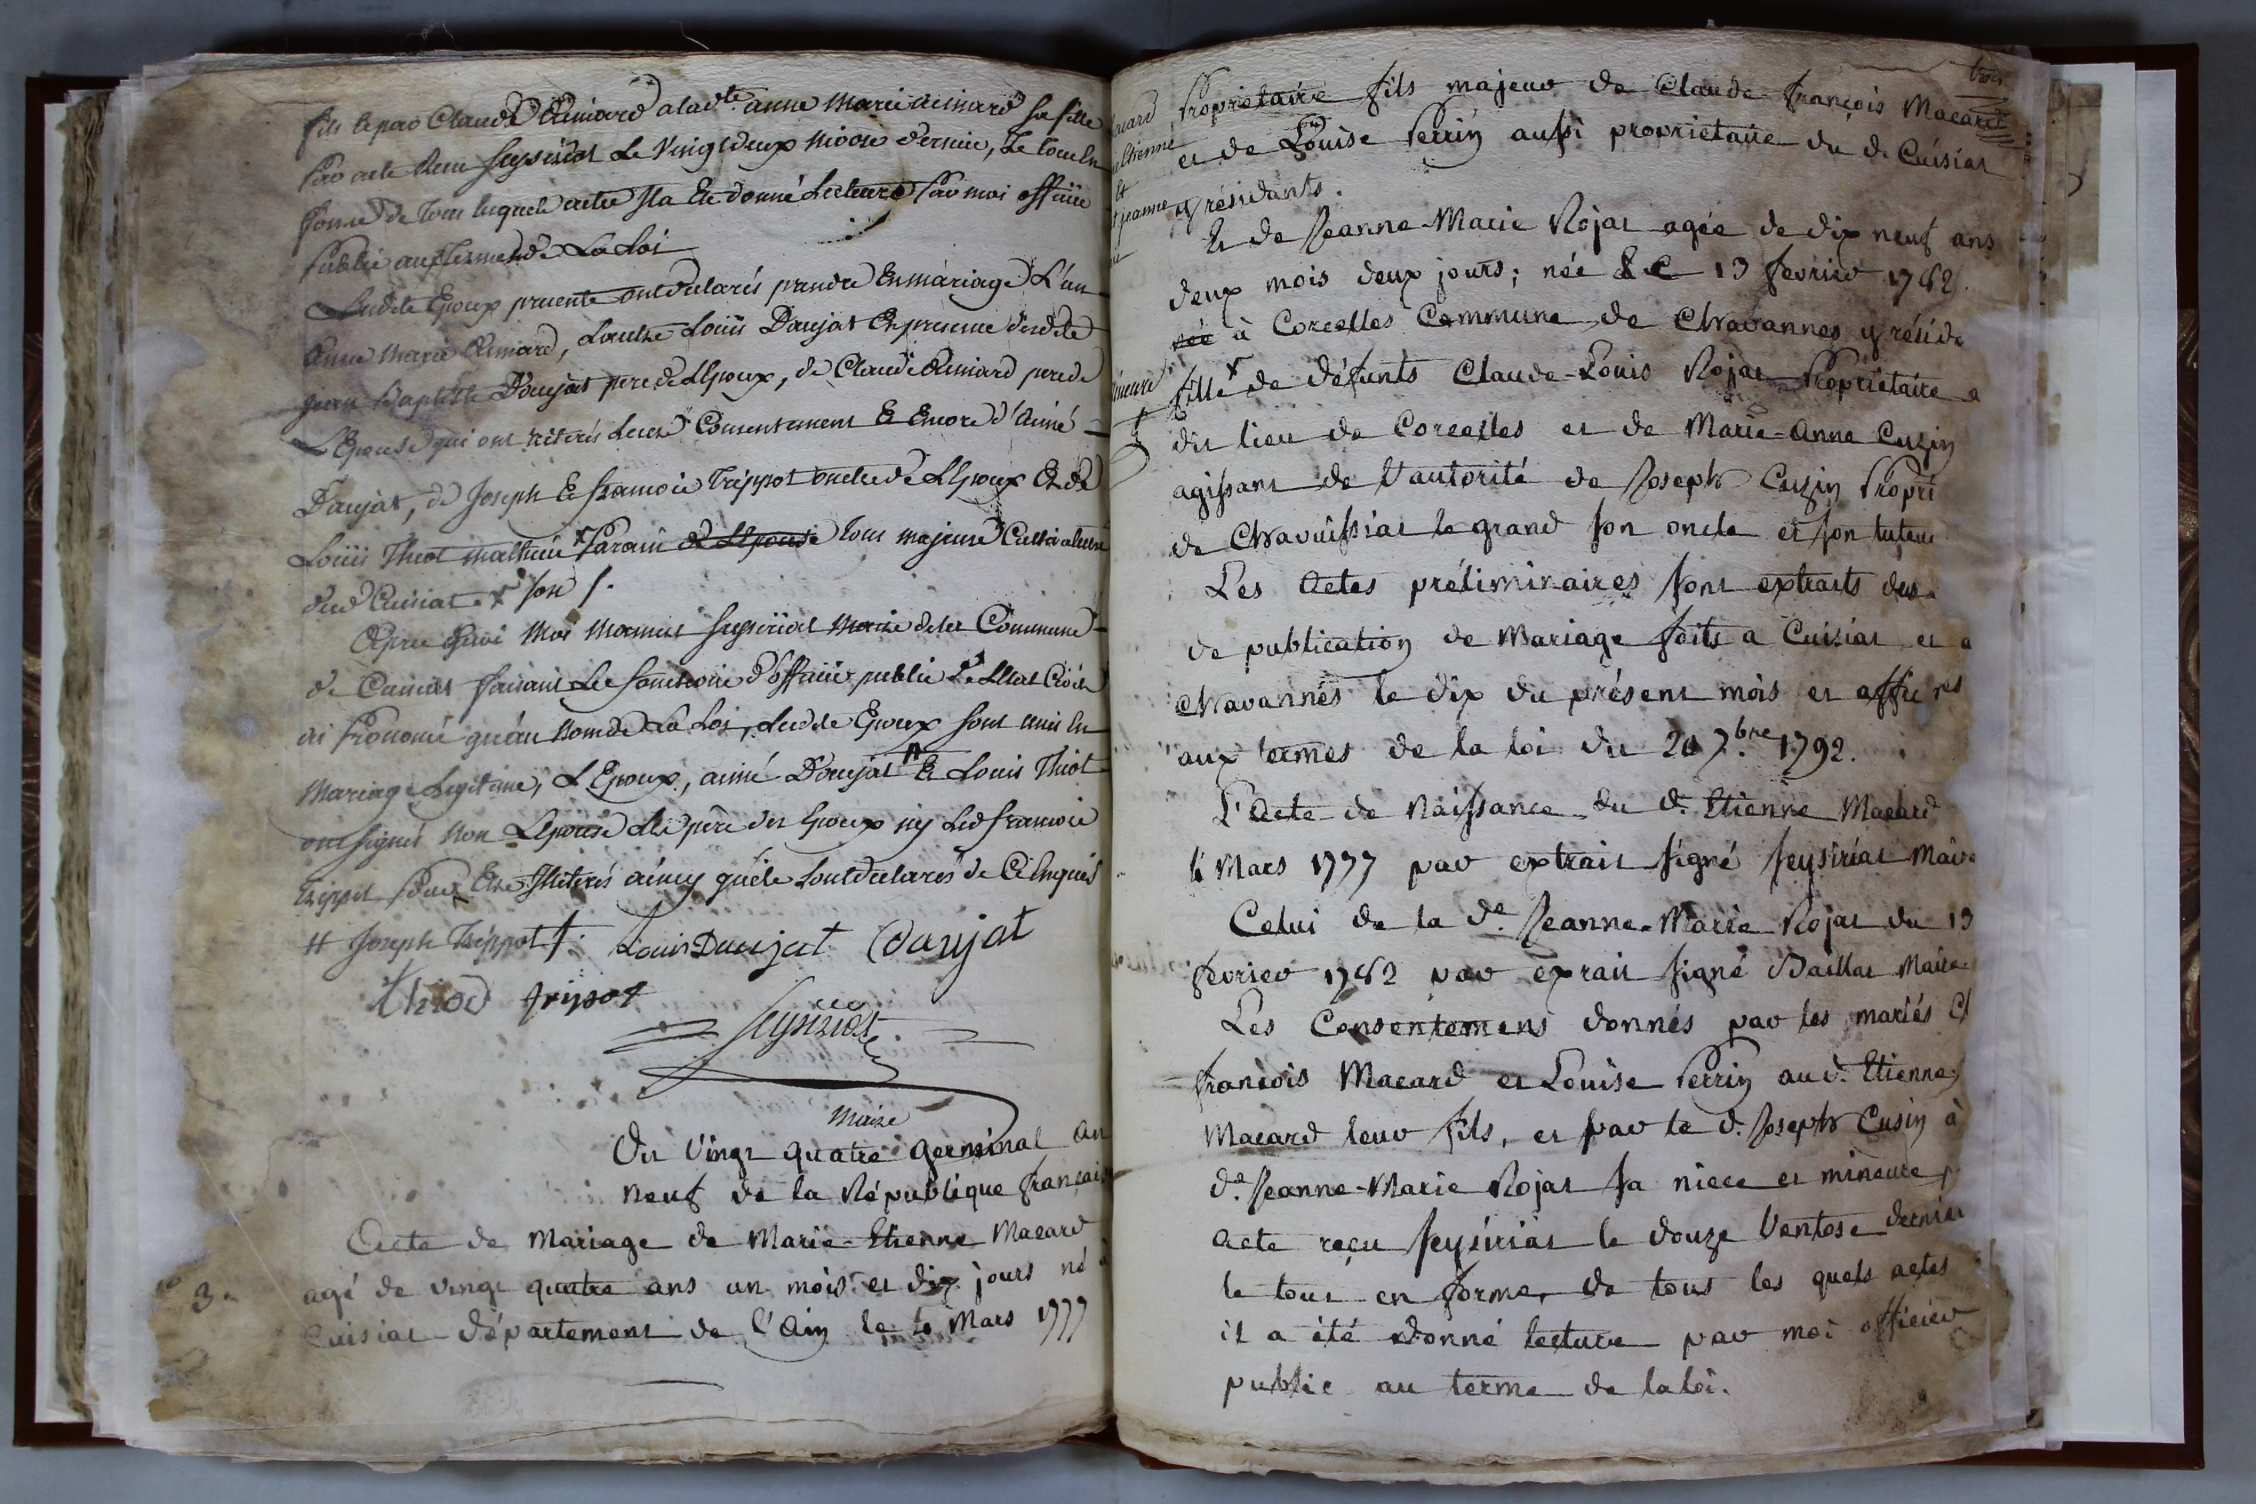 fils & par Claude Aimard a ladte anne marie aimard sa fille
par acte Reçu Seysiriat Le Vingt deux nivose dernier, Le tout En
forme de tous lesquels actes Il a Eté donné Lecture par moi officier
public aux termes de La Loi
Lesdits Epoux presents ont déclarés prendre En mariage L'un
Anne Marie Aimard, Lautre Louis Daujat En presence dudit
jean Baptiste Daujat pere de L'Epoux, de Claude Aimard pere de
L'Epouse qui ont réiterés Leurs Consentement & Encore d'Aimé
Daujat, de Joseph & françois Trippot oncles de L'Epoux Et de
Louis Thiot x parain de L'Epouse tous majeurs Cultivateurs
dud Cuisiat. x son
Apres quoi Moi Seysiriat Maire de la Commune
de Cuisiat faisant Les fonctions d'officier public de L'Etat Civil
ai prononcé qu'au Nom de La Loi, Lesdits Epoux sont unis En
Mariage Legitime, L'Epoux, aimé Daujat # & Louis Thiot
ont signés non L'Epouse Les pere des Epoux ny Led françois
Trippot pour Etre Illiterés ainsy qu'ils L'ont déclarés de Ce Enquis
# Joseph Trippot Louis Daujat Daujat
thiod tripot
Seysiriat
Maire
Du Vingt quatre Germinal an
neuf de la République française
Acte de Mariage de Marie-Etienne Macard
3.
agé de vingt quatre ans un mois et dix jours né à
Cuisiat département de l'Ain le 4 Mars 1777
trois
Propriétaire fils majeur de Claude-françois Macard
et de Louise Perrin aussi propriétaire du d. Cuisiat
y résidants.
acard
Etienne
Et
jeanne
Et de Jeanne-Marie Rojat agée de dix neuf ans
deux mois deux jours; née le 13 fevrier 1782
née à Corcelles Commune de Chavannes y réside
mineure
fille x de défunts Claude-Louis Rojat Propriétaire a
du lieu de Corcelles et de Marie-Anne Cuzin
agissant de l'autorité de Joseph Cuzin Propri
de Chavuissiat le grand son oncle et son tuteur
Les Actes préliminaires sont extraits des
de publication de Mariage faits a Cuisiat et a
Chavannes le dix du présent mois et affichés
aux termes de la loi du 20 7.bre 1792.
L'Acte de Naissance du d. Etienne Macard
4 Mars 1777 par extrait signé Seysiriat Maire
Celui de la de Jeanne-Marie Rojat du 13
fevrier 1782 par exprait signé Baillat Maire
Les Consentemens donnés par les mariés Cl
françois Macard et Louise Perrin au d. Etienne
Macard leur fils, et par le d. Joseph Cusin à
de Jeanne-Marie Rojat sa niece et mineure
acte reçu Seysiriat le douze Ventose dernier
le tout en forme, de tous les quels actes
il a été donné lecture par moi officier
public au terme de la loi.